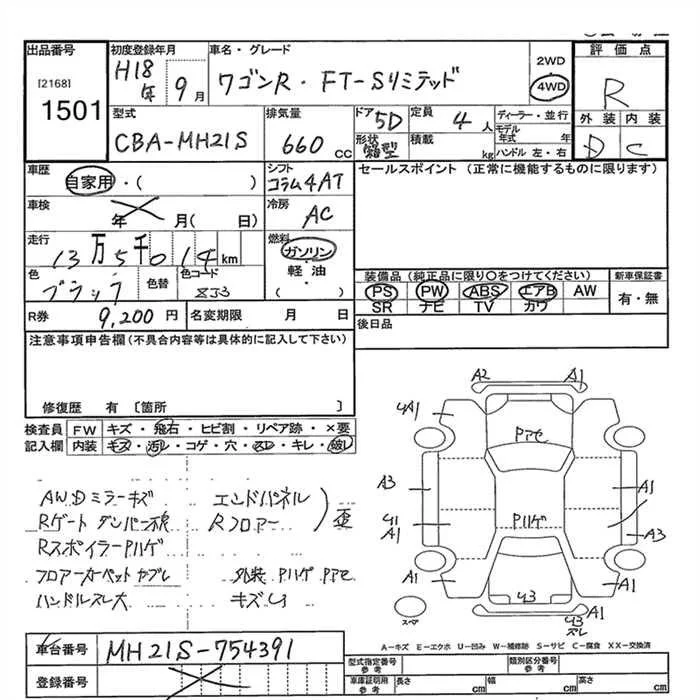 出品番号 初度登録年月 車名・グレード 2WD 評価点
[2168] H18年 9月 ワゴンR・FT-Sリミテッド 4WD R
1501 型式 排気量 ドア 5D 定員 4人 ディーラー・並行 外装 内装
CBA-MH21S 660cc 形状 箱型 積載 kg モデル年式 年 D C
ハンドル 左・右
車歴 シフト セールスポイント (正常に機能するものに限ります)
自家用・( ) コラム4AT
車検 冷房
年 月( 日) AC
走行 燃料
13万5千014km ガソリン
色 色替 色コード 軽油 装備品(純正品に限り○をつけてください) 新車保証書
ブラック ZJ3 ( ) PS PW ABS エアB AW 有・無
SR ナビ TV カワ
R券 9,200円 名変期限 月 日 後日品
注意事項申告欄(不具合内容等は具体的に記入して下さい)
修復歴 有 [箇所 ]
検査員 FW キズ・飛石・ヒビ割・リペア跡・×要
記入欄 内装 キズ・汚レ・コゲ・穴・スレ・キレ・破レ
A2 A1
4A1 A1
Pアセ
AW.Dミラーキズ エンドパネル
Rゲートダンパー不良 Rフロアー 歪
RスポイラーPハゲ
フロアーカーペットヤブレ 外装 Pハゲ Pアセ
ハンドルスレ大 キズU
A3 A1
Pハゲ
U1 A1 A3
A1 A1
U3
スペア U3 スレ A1
A-キズ E-エクボ U-凹み W-補修跡 S-サビ C-腐食 XX-交換済
車台番号 MH21S-754391
登録番号
型式指定番号 参考 類別区分番号 参考
車庫証明用 参考 長さ cm 幅 cm 高さ cm